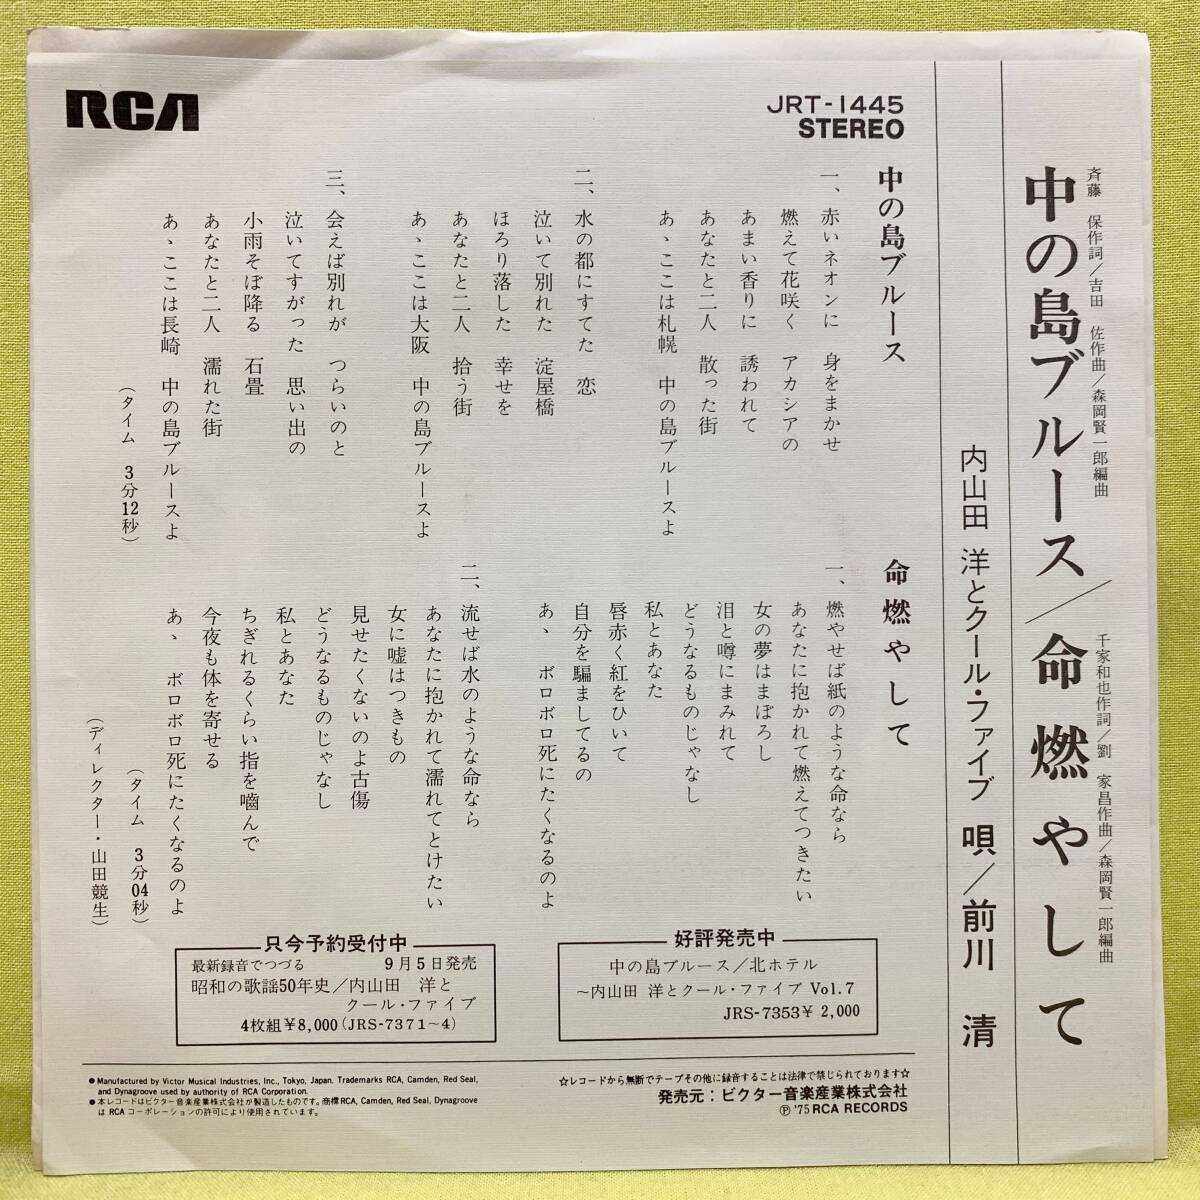 RCA
JRT-1445
STEREO
斉藤 保作詞/吉田 佐作曲/森岡賢一郎編曲
千家和也作詞/劉 家昌作曲/森岡賢一郎編曲
中の島ブルース/命燃やして
内山田 洋とクール・ファイブ 唄/前川 清
中の島ブルース
一、赤いネオンに 身をまかせ
燃えて花咲く アカシアの
あまい香りに 誘われて
あなたと二人 散った街
あゝここは札幌 中の島ブルースよ
二、水の都にすてた 恋
泣いて別れた 淀屋橋
ほろり落した 幸せを
あなたと二人 拾う街
あゝここは大阪 中の島ブルースよ
三、会えば別れが つらいのと
泣いてすがった 思い出の
小雨そぼ降る 石畳
あなたと二人 濡れた街
あゝここは長崎 中の島ブルースよ
(タイム 3分12秒)
命燃やして
一、燃やせば紙のような命なら
あなたに抱かれて燃えてつきたい
女の夢はまぼろし
泪と噂にまみれて
どうなるものじゃなし
私とあなた
唇赤く紅をひいて
自分を騙ましてるの
あゝ ボロボロ死にたくなるのよ
二、流せば水のような命なら
あなたに抱かれて濡れてとけたい
女に嘘はつきもの
見せたくないのよ古傷
どうなるものじゃなし
私とあなた
ちぎれるくらい指を嚙んで
今夜も体を寄せる
あゝ ボロボロ死にたくなるのよ
(タイム 3分04秒)
(ディレクター・山田競生)
只今予約受付中
最新録音でつづる 9月5日発売
昭和の歌謡50年史/内山田 洋と
クール・ファイブ
4枚組¥8,000(JRS-7371~4)
好評発売中
中の島ブルース/北ホテル
~内山田 洋とクール・ファイブ Vol.7
JRS-7353¥ 2,000
● Manufactured by Victor Musical Industries, Inc., Tokyo, Japan. Trademarks RCA, Camden, Red Seal,
and Dynagroove used by authority of RCA Corporation.
● 本レコードはビクター音楽産業株式会社が製造したものです。商標RCA, Camden, Red Seal, Dynagroove
は RCA コーポレーションの許可により使用されています。
☆レコードから無断でテープその他に録音することは法律で禁じられております☆
発売元:ビクター音楽産業株式会社
Ⓟ '75 RCA RECORDS